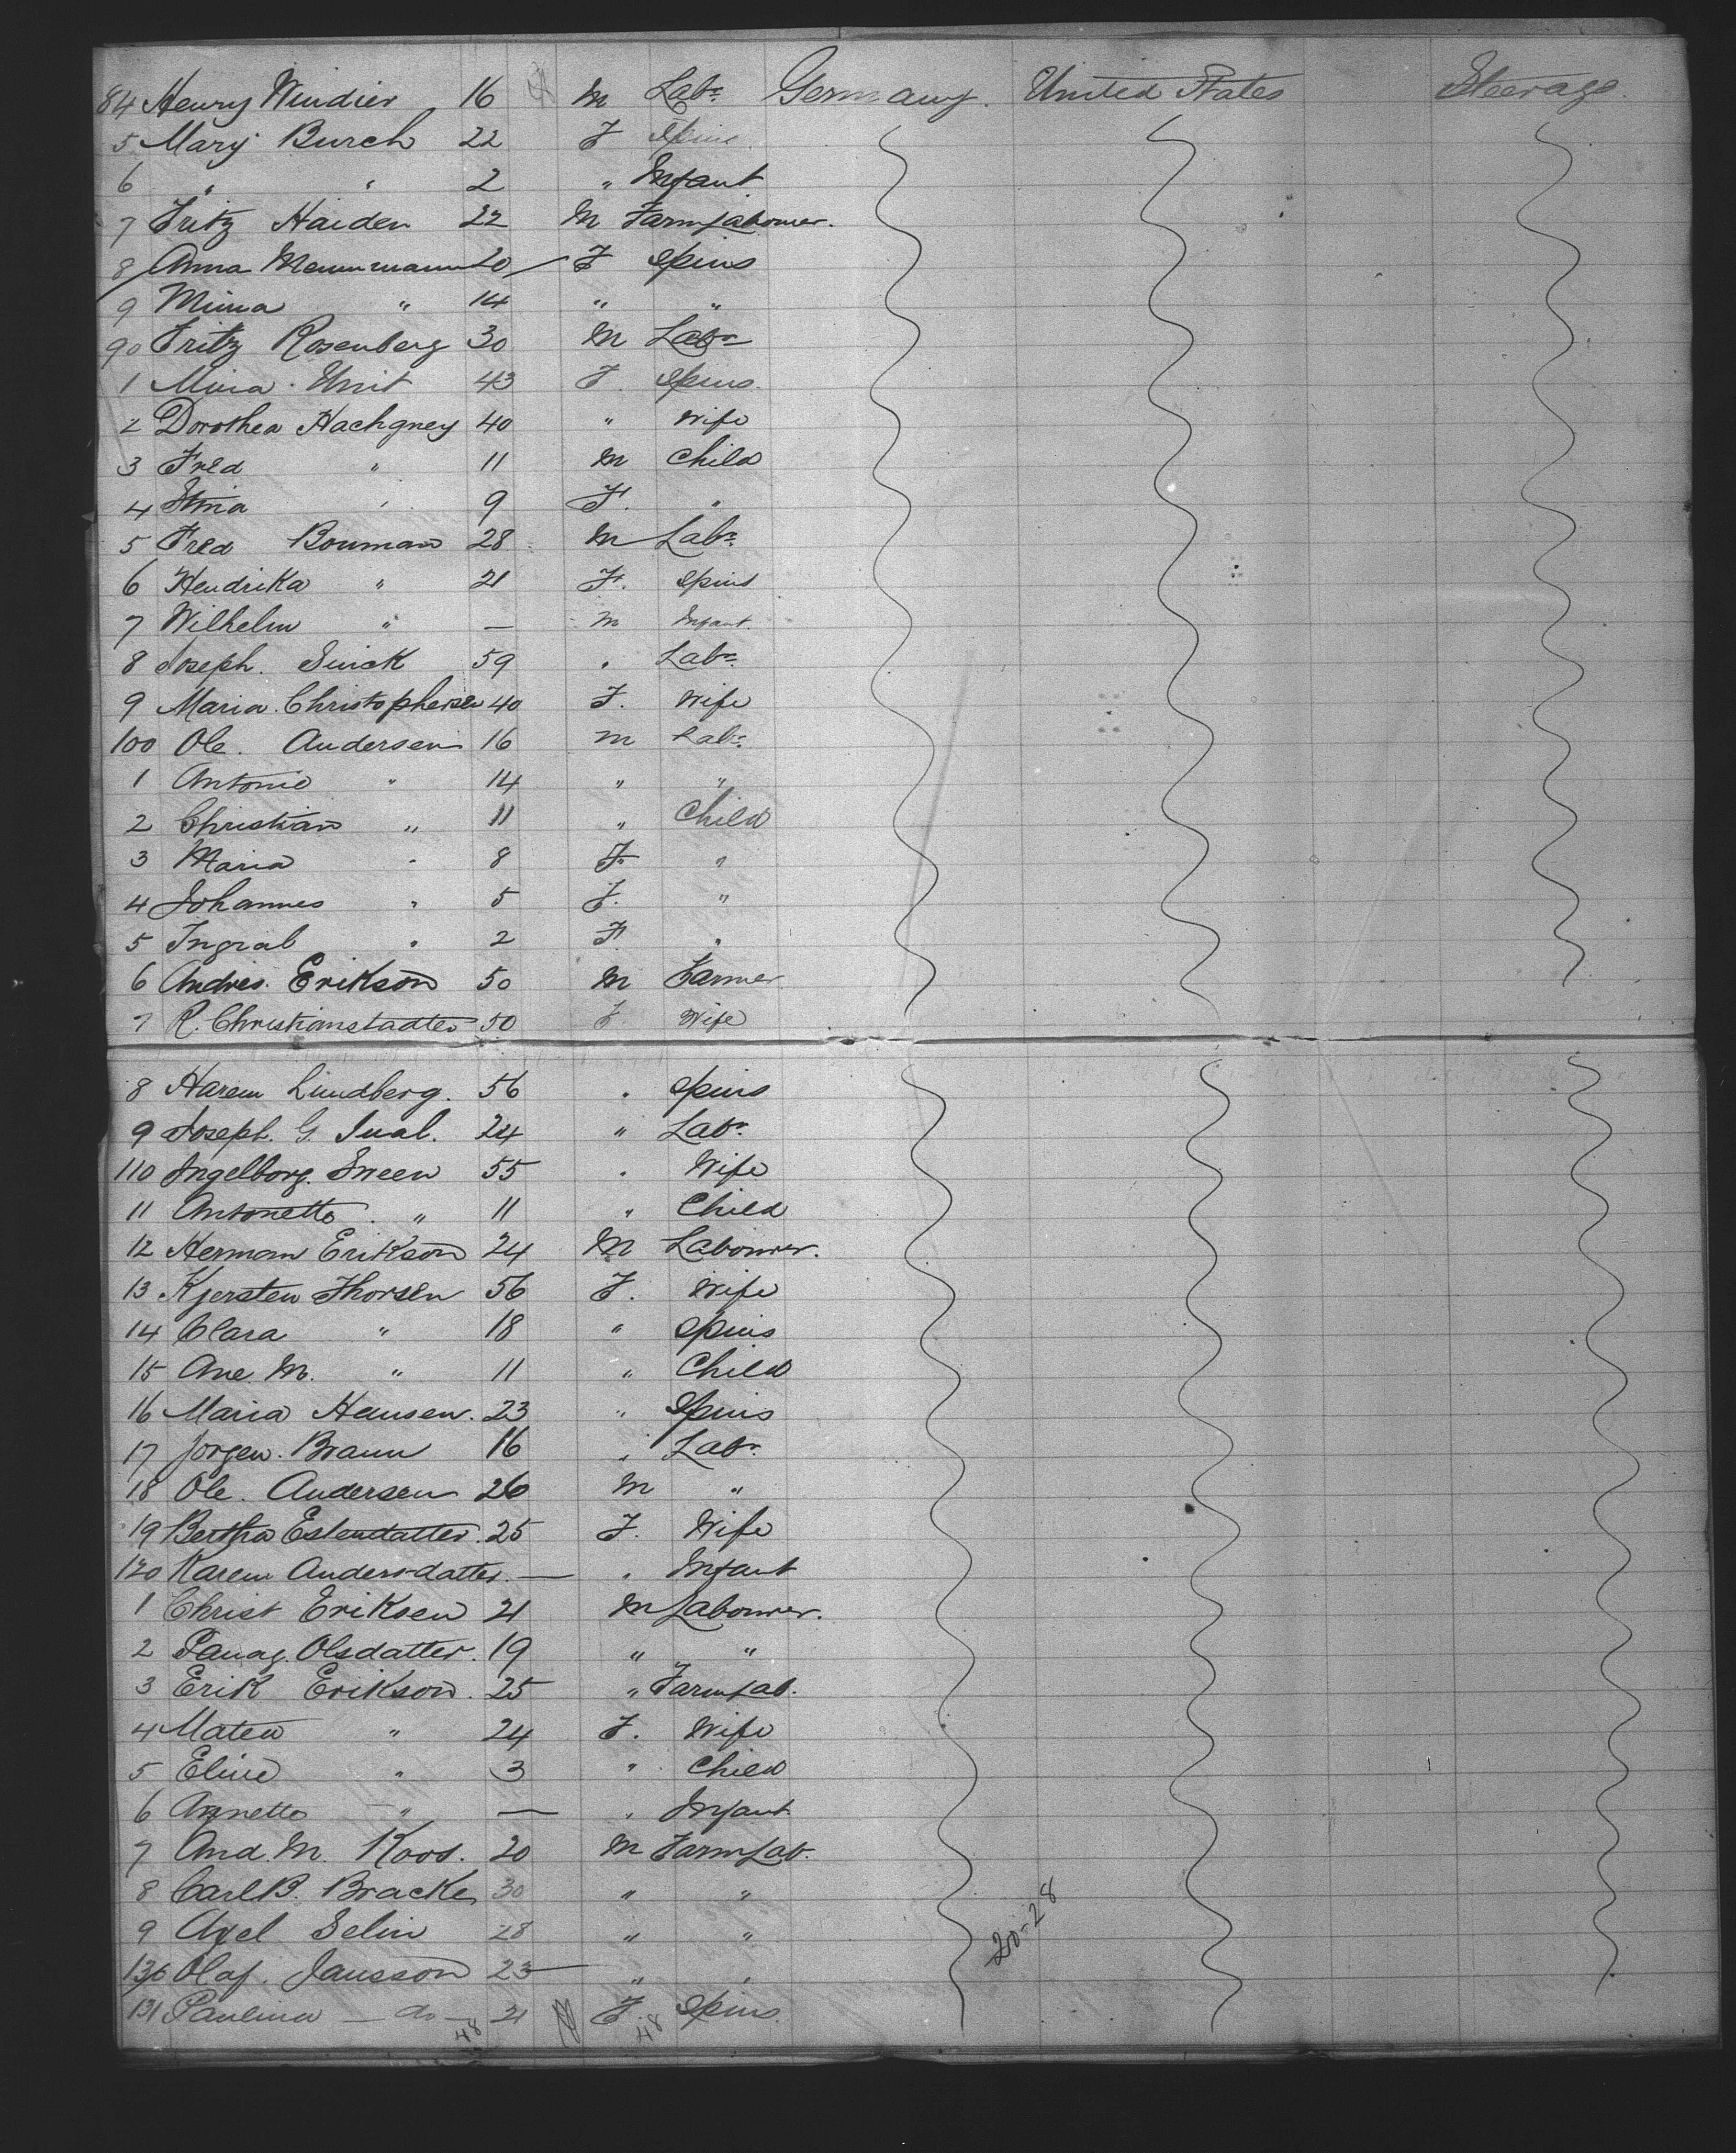 84 Henry Windier 16 M Labr Germany. United States Steerage.
5 Mary Burch 22 F Spins
6 " " 2 " Infant
7 Fritz Haiden 22 M Farm Labourer.
8 Anna 20 F Spins
9 Minna " 14 " "
90 Fritz Rosenberg 30 M Labr
1 Mina 43 F. Spins.
2 Dorothea Hachgney 40 " Wife
3 Fred " 11 M Child
4 Stina " 9 F. "
5 Fred Bouman 28 M Labr.
6 Hendrika " 21 F. Spins
7 Wilhelm " — M Infant.
8 Joseph. 59 " Labr.
9 Maria. Christophersen 40 F. Wife
100 Ole. Andersen 16 M Labr.
1 Antonie " 14 " "
2 Christian " 11 " Child
3 Maria " 8 F. "
4 Johannes " 5 F. "
5 Ingral " 2 F. "
6 Andres. Erikson 50 M Farmer
7 R. Christianstadter 50 F. Wife
8 Harem Lundberg. 56 " Spins
9 Joseph. G. 24 " Labr.
110 Ingelborg. Sween 55 " Wife
11 Antonette. " 11 " Child
12 Herman Erikson 24 M Labourer.
13 Kjersten Thorsen 56 F. Wife
14 Clara " 18 " Spins
15 Ane. M. " 11 " Child
16 Maria Hansen. 23 " Spins
17 Jorgen. Braun 16 " Labr.
18 Ole. Andersen 26 M "
19 Bertha Eslendatter. 25 F. Wife
120 Karen Andersdatter. — " Infant
1 Christ Eriksen 21 M Labourer.
2 Olsdatter. 19 " "
3 Erik Erikson. 25 " Farm Lab.
4 Maten " 24 F. Wife
5 Eline " 3 " Child
6 Annette " — " Infant
7 And. M. Koos. 20 M Farm Lab.
8 Carl B. Bracke 30 " "
9 Axel Selin 28 " "
20-28
130 Olaf. Jansson 23 " "
131 Paulina — do — 21 F. Spins.
48 48